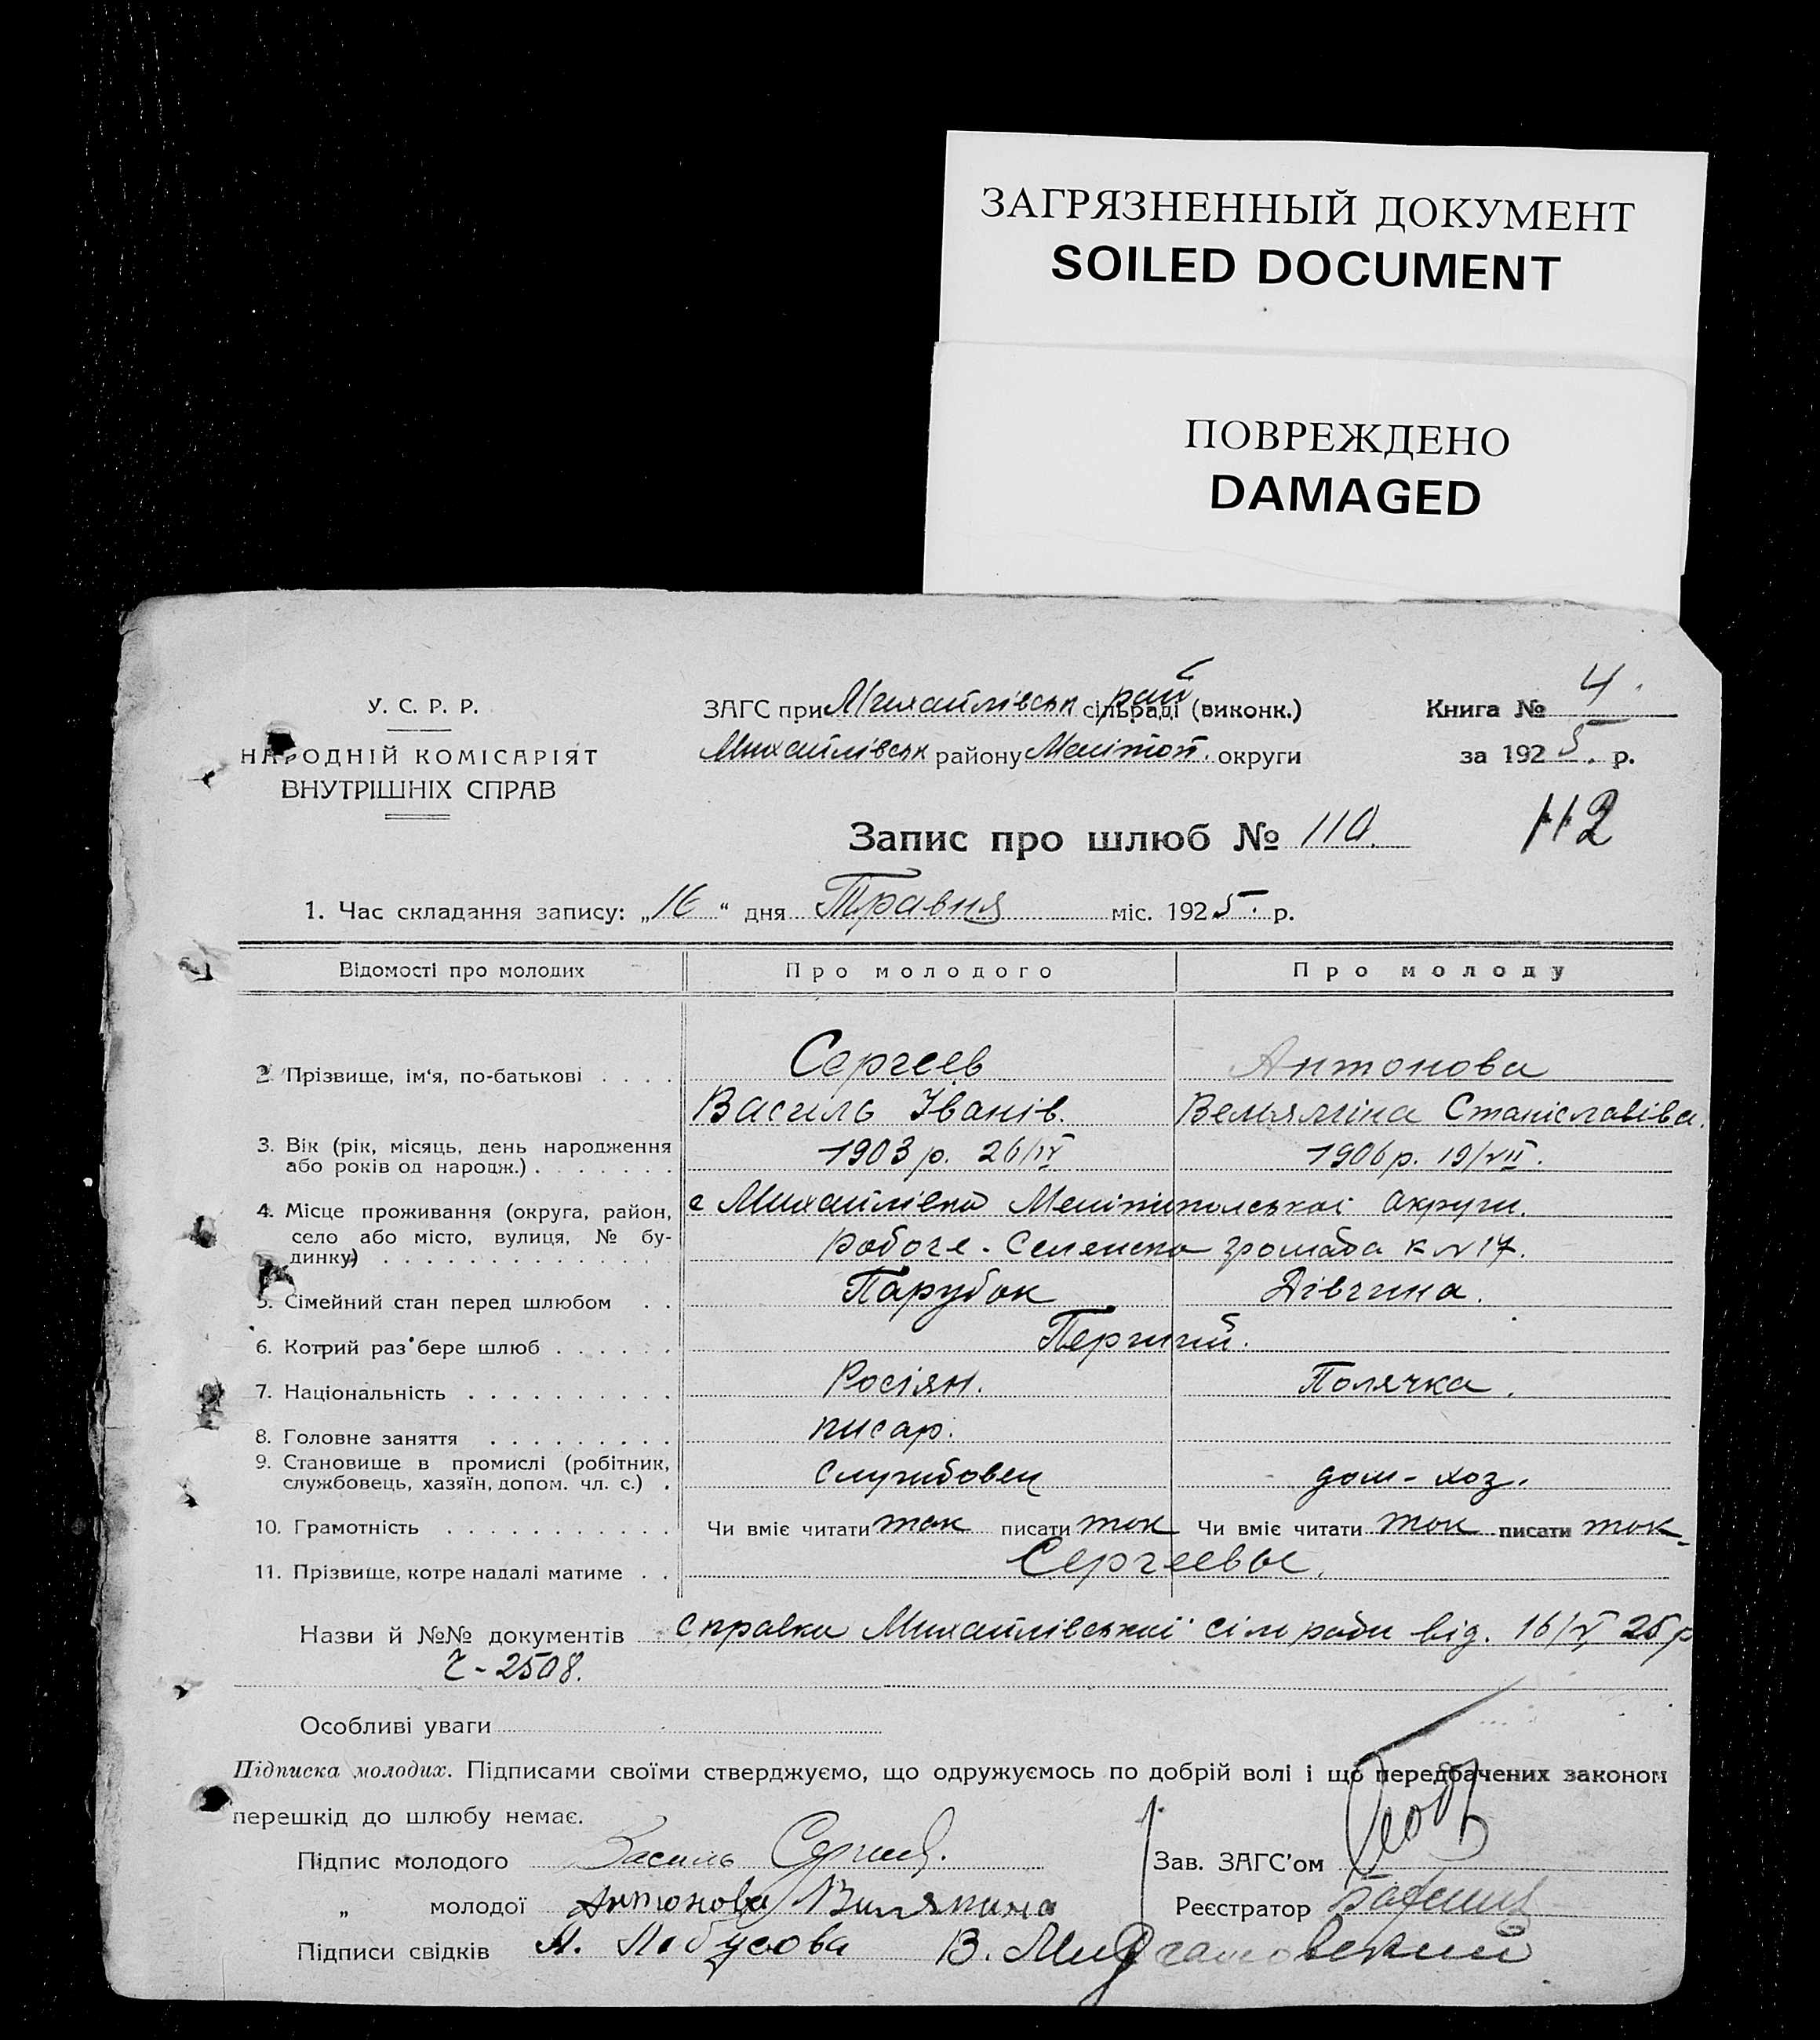 ЗАГРЯЗНЕННЫЙ ДОКУМЕНТ
SOILED DOCUMENT
ПОВРЕЖДЕНО
DAMAGED
У. С. Р. Р.
НАРОДНІЙ КОМІСАРІЯТ
ВНУТРІШНІХ СПРАВ
ЗАГС при Михайлівськ рай сільраді (виконк.)
Михайлівськ району Мелітоп. округи
Книга № 4.
за 1925. р.
Запис про шлюб № 110.
112
1. Час складання запису: „16“ дня Травня міс. 1925. р.
Відомості про молодих Про молодого Про молоду
2 Прізвище, ім‘я, по-батькові . . . . Сергеєв Антонова
Василь Іванів. Станіславівa.
3. Вік (рік, місяць, день народження
або років од народж.) . . . . . . 1903 р. 26/IV 1906 р. 19/VII.
4. Місце проживання (округа, район, с Михайлівка Меліпітполської округи.
село або місто, вулиця, № бу-
динку) . . . . . . . . . . . . . громада к № 17.
5. Сімейний стан перед шлюбом . . Парубок Дівчина.
6. Котрий раз бере шлюб . . . . . . Перший.
7. Національність . . . . . . . . . . Росіян. Полячка.
8. Головне заняття . . . . . . . . . писар.
9. Становище в промислі (робітник,
службовець, хазяїн, допом. чл. с.) . службовец дом-хоз.
10. Грамотність . . . . . . . . . . . Чи вміє читати так писати так Чи вміє читати так писати так
11. Прізвище, котре надалі матиме . . Сергеевы.
Назви й №№ документів справки Михайлівської сільради від. 16/V 25 р
Ч-2508.
Особливі уваги
Підписка молодих. Підписами своїми стверджуємо, що одружуємось по добрій волі і що передбачених законом
перешкід до шлюбу немає.
Підпис молодого Василь Сергеев.
Зав. ЗАГС’ом
„ молодої Антонова
Реєстратор
Підписи свідків А. В.